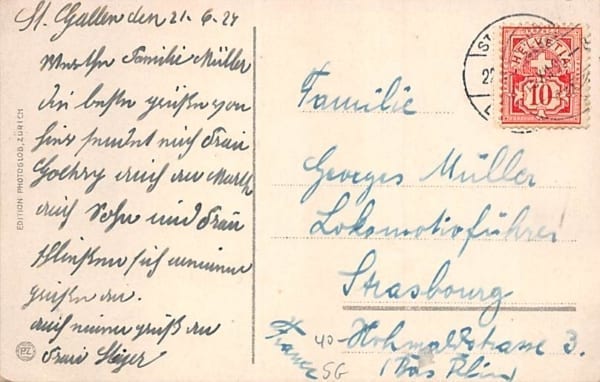 St. Gallen den 21.6.24
Werthe Familie Müller
die besten grüße von
hier sendet euch Frau
auch Sohn und Frau
schließen sich meinen
grüßen an.
auch meine grüß an
Frau
EDITION PHOTOGLOB, ZÜRICH
PZ
HELVETIA
10
Familie
Georges Müller
Lokomotivführer
Strasbourg
40 Hohwaldstrasse 3.
(Bas Rhin)
France
SG